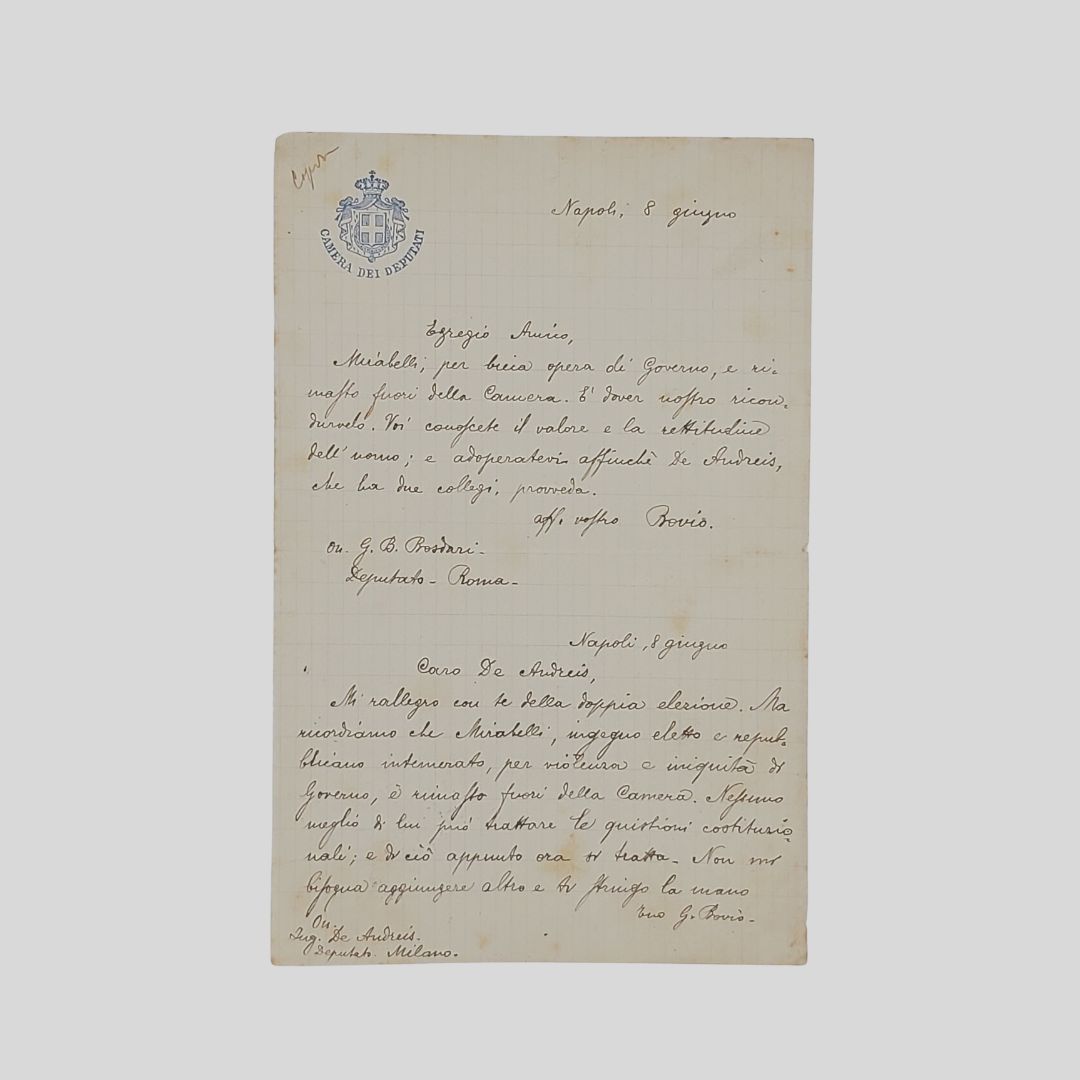 Copia
CAMERA DEI DEPUTATI
Napoli, 8 giugno
Egregio Amico,
Mirabelli, per bieca opera di Governo, e ri-
masto fuori della Camera. E' dover nostro ricon-
durvelo. Voi conoscete il valore e la rettitudine
dell'uomo; e adoperatevi affinchè De Andreis,
che ha due collegi, provveda.
aff. vostro Bovio.
On. G. B. Bosdari-
Deputato - Roma-
Napoli, 8 giugno
Caro De Andreis,
Mi rallegro con te della doppia elezione. Ma
ricordiamo che Mirabelli, ingegno eletto e repub-
blicano intemerato, per violenza e iniquità di
Governo, è rimasto fuori della Camera. Nessuno
meglio di lui può trattare le quistioni costituzio-
nali; e di ciò appunto ora si tratta- Non mi
bisogna aggiungere altro e ti stringo la mano
tuo G. Bovio-
On.
Ing. De Andreis.
Deputato. Milano.